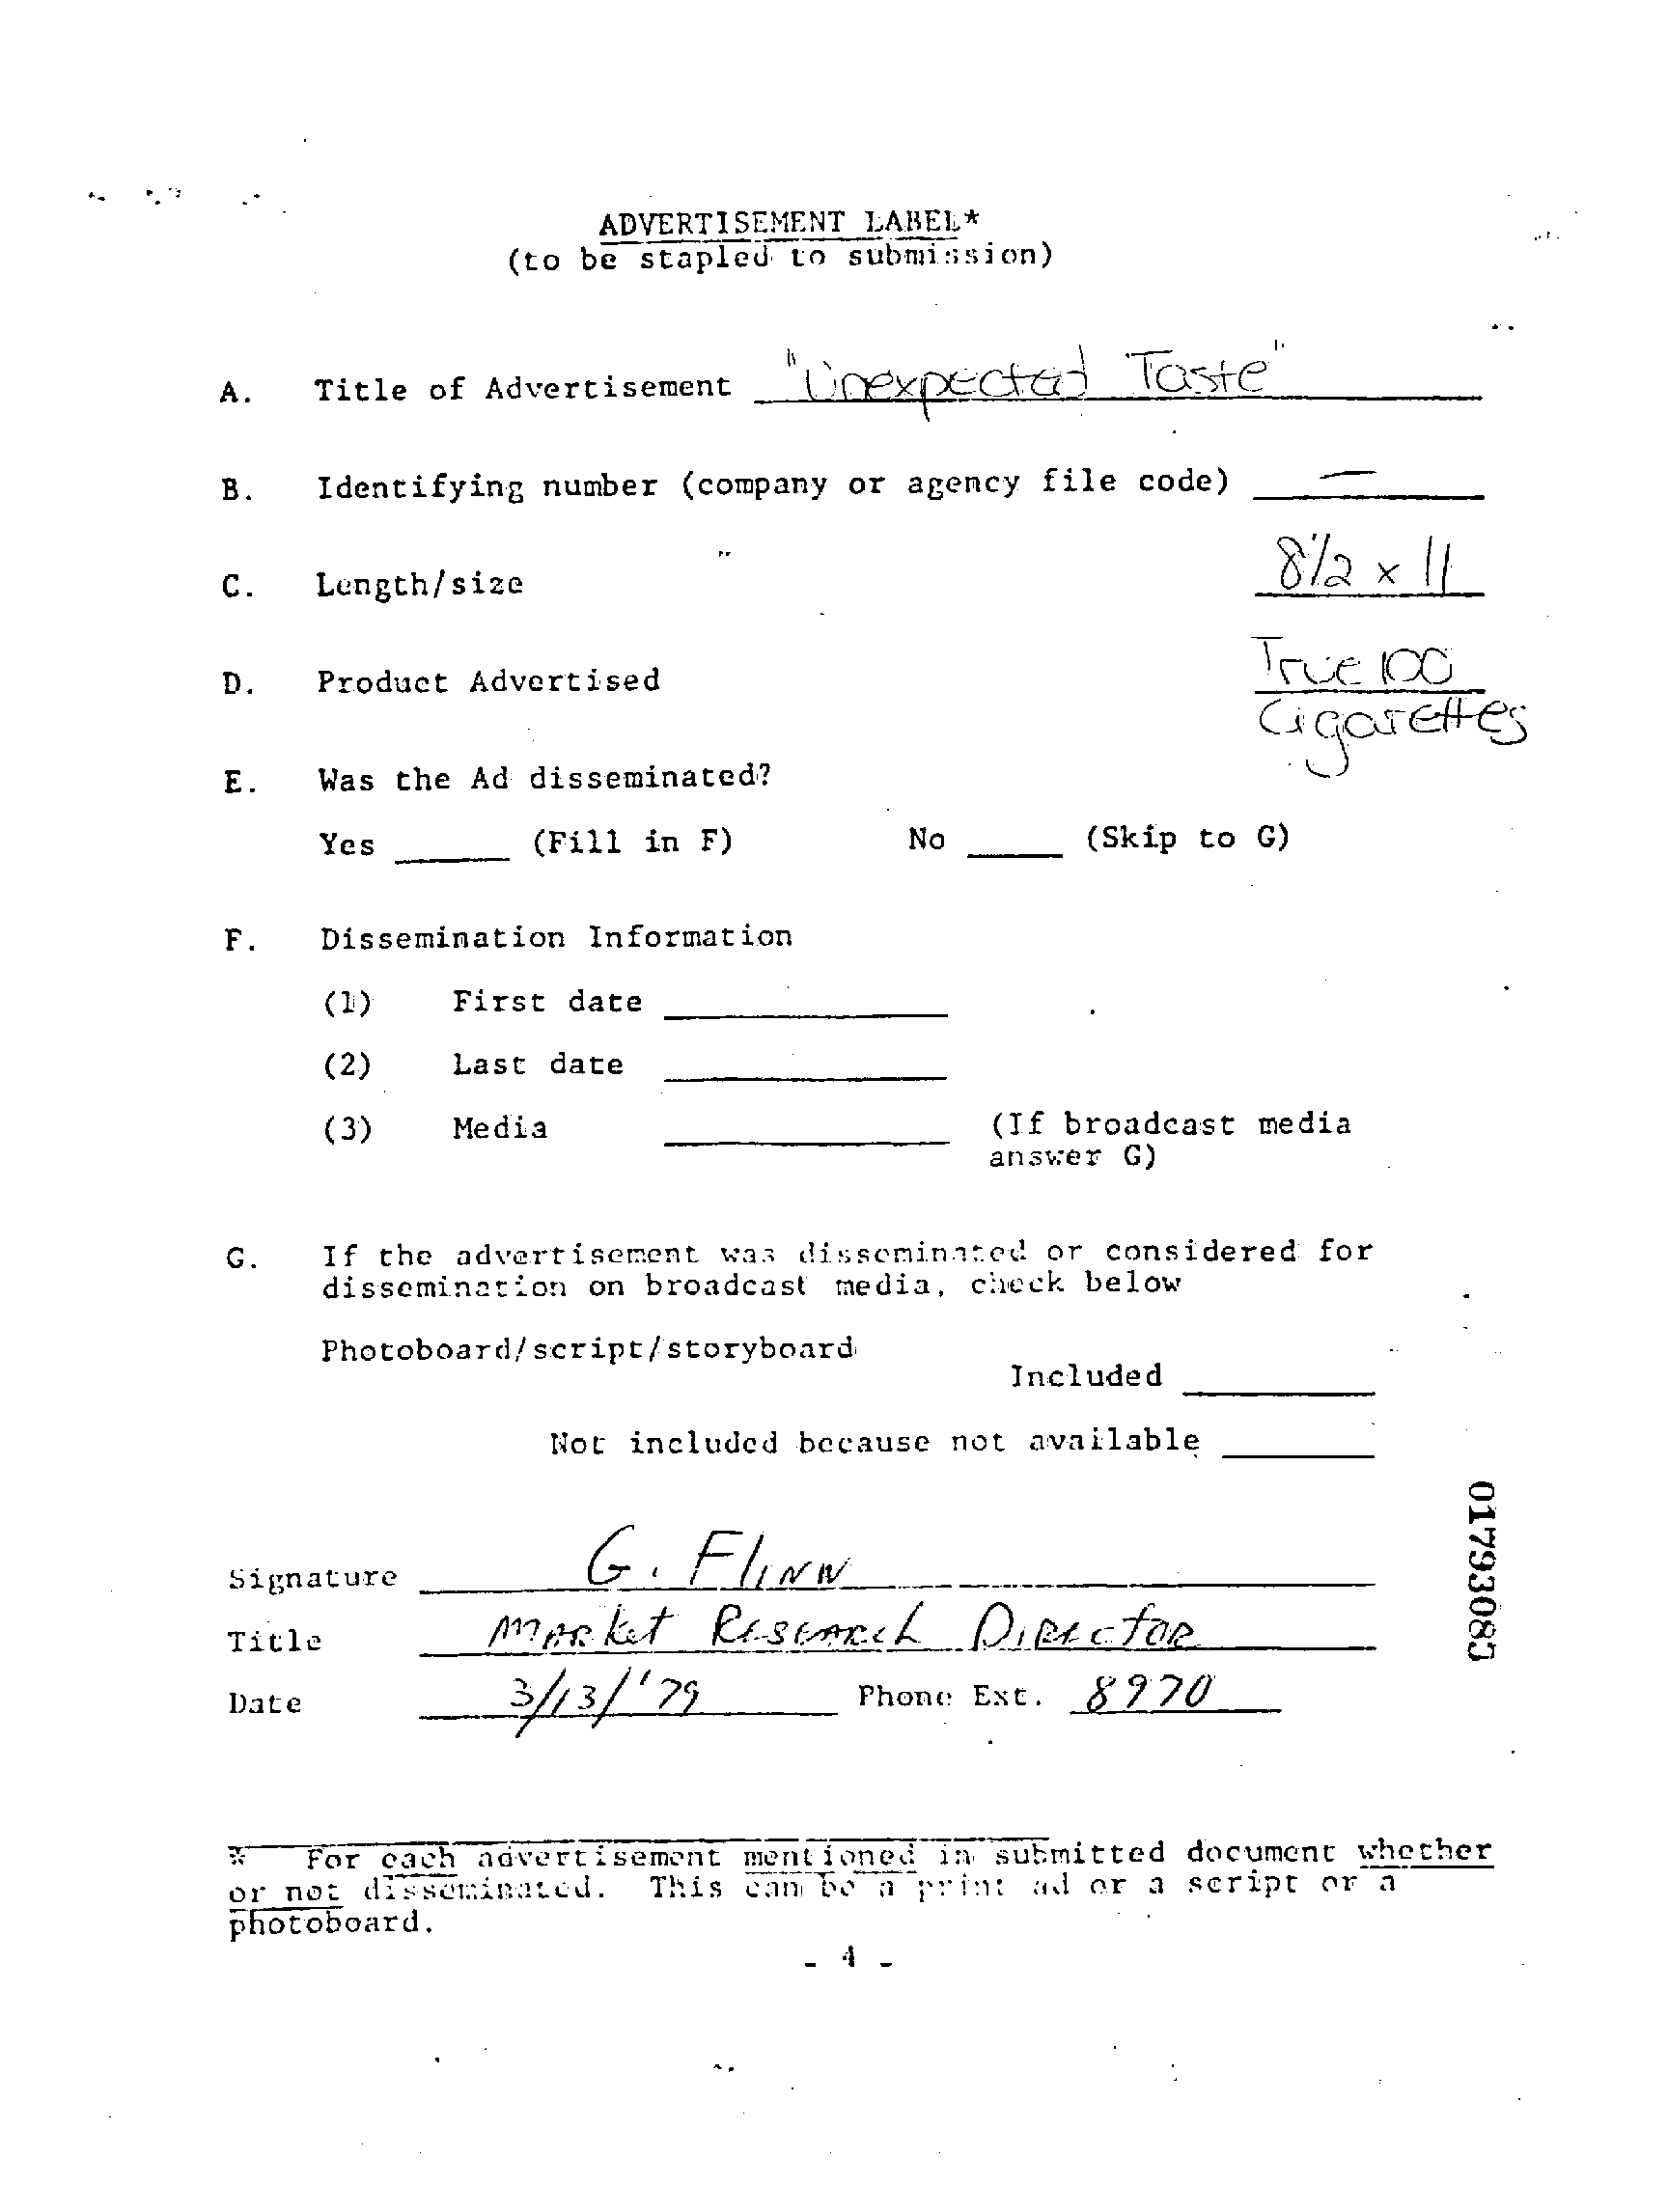 ADVERTISEMENT LABEL*
(to be stapled to submission)
A. Title of Advertisement "Unexpected Taste"
B. Identifying number (company or agency file code) —
C. Length/size 8 1/2 x 11
D. Product Advertised True 100
Cigarettes
E. Was the Ad disseminated?
Yes ______ (Fill in F) No _____ (Skip to G)
F. Dissemination Information
(1) First date
(2) Last date
(3) Media (If broadcast media
answer G)
G. If the advertisement was disseminated or considered for
dissemination on broadcast media, check below
Photoboard/script/storyboard
Included
Not included because not available
Signature G. Flinn
Title Market Research Director
Date 3/13/'79 Phone Ext. 8970
* For each advertisement mentioned in submitted document whether
or not disseminated. This can be a print ad or a script or a
photoboard.
- 4 -
01793085